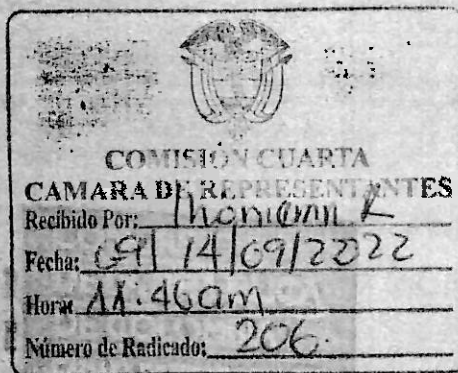 COMISIÓN CUARTA
CAMARA DE REPRESENTANTES
Recibido Por:
Fecha: 09/ 14/09/2022
Hora: 11:46am
Número de Radicado: 206.